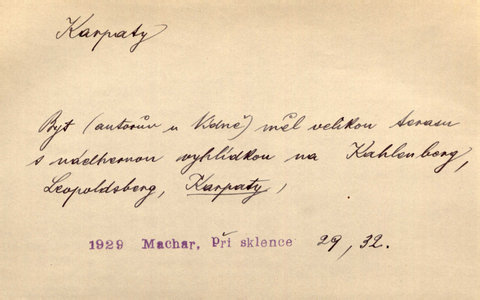 Karpaty
Byt (autorův u Vídně) měl velikou terasu
s nádhernou vyhlídkou na Kahlenberg,
Leopoldsberg, Karpaty,
1929 Machar, Při sklence 29, 32.